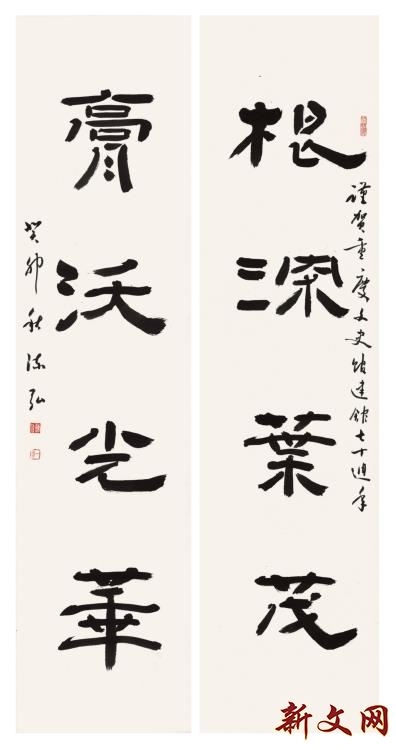 謹賀重慶文史館建館七十週年
根深葉茂
膏沃光華
癸卯秋
新文网